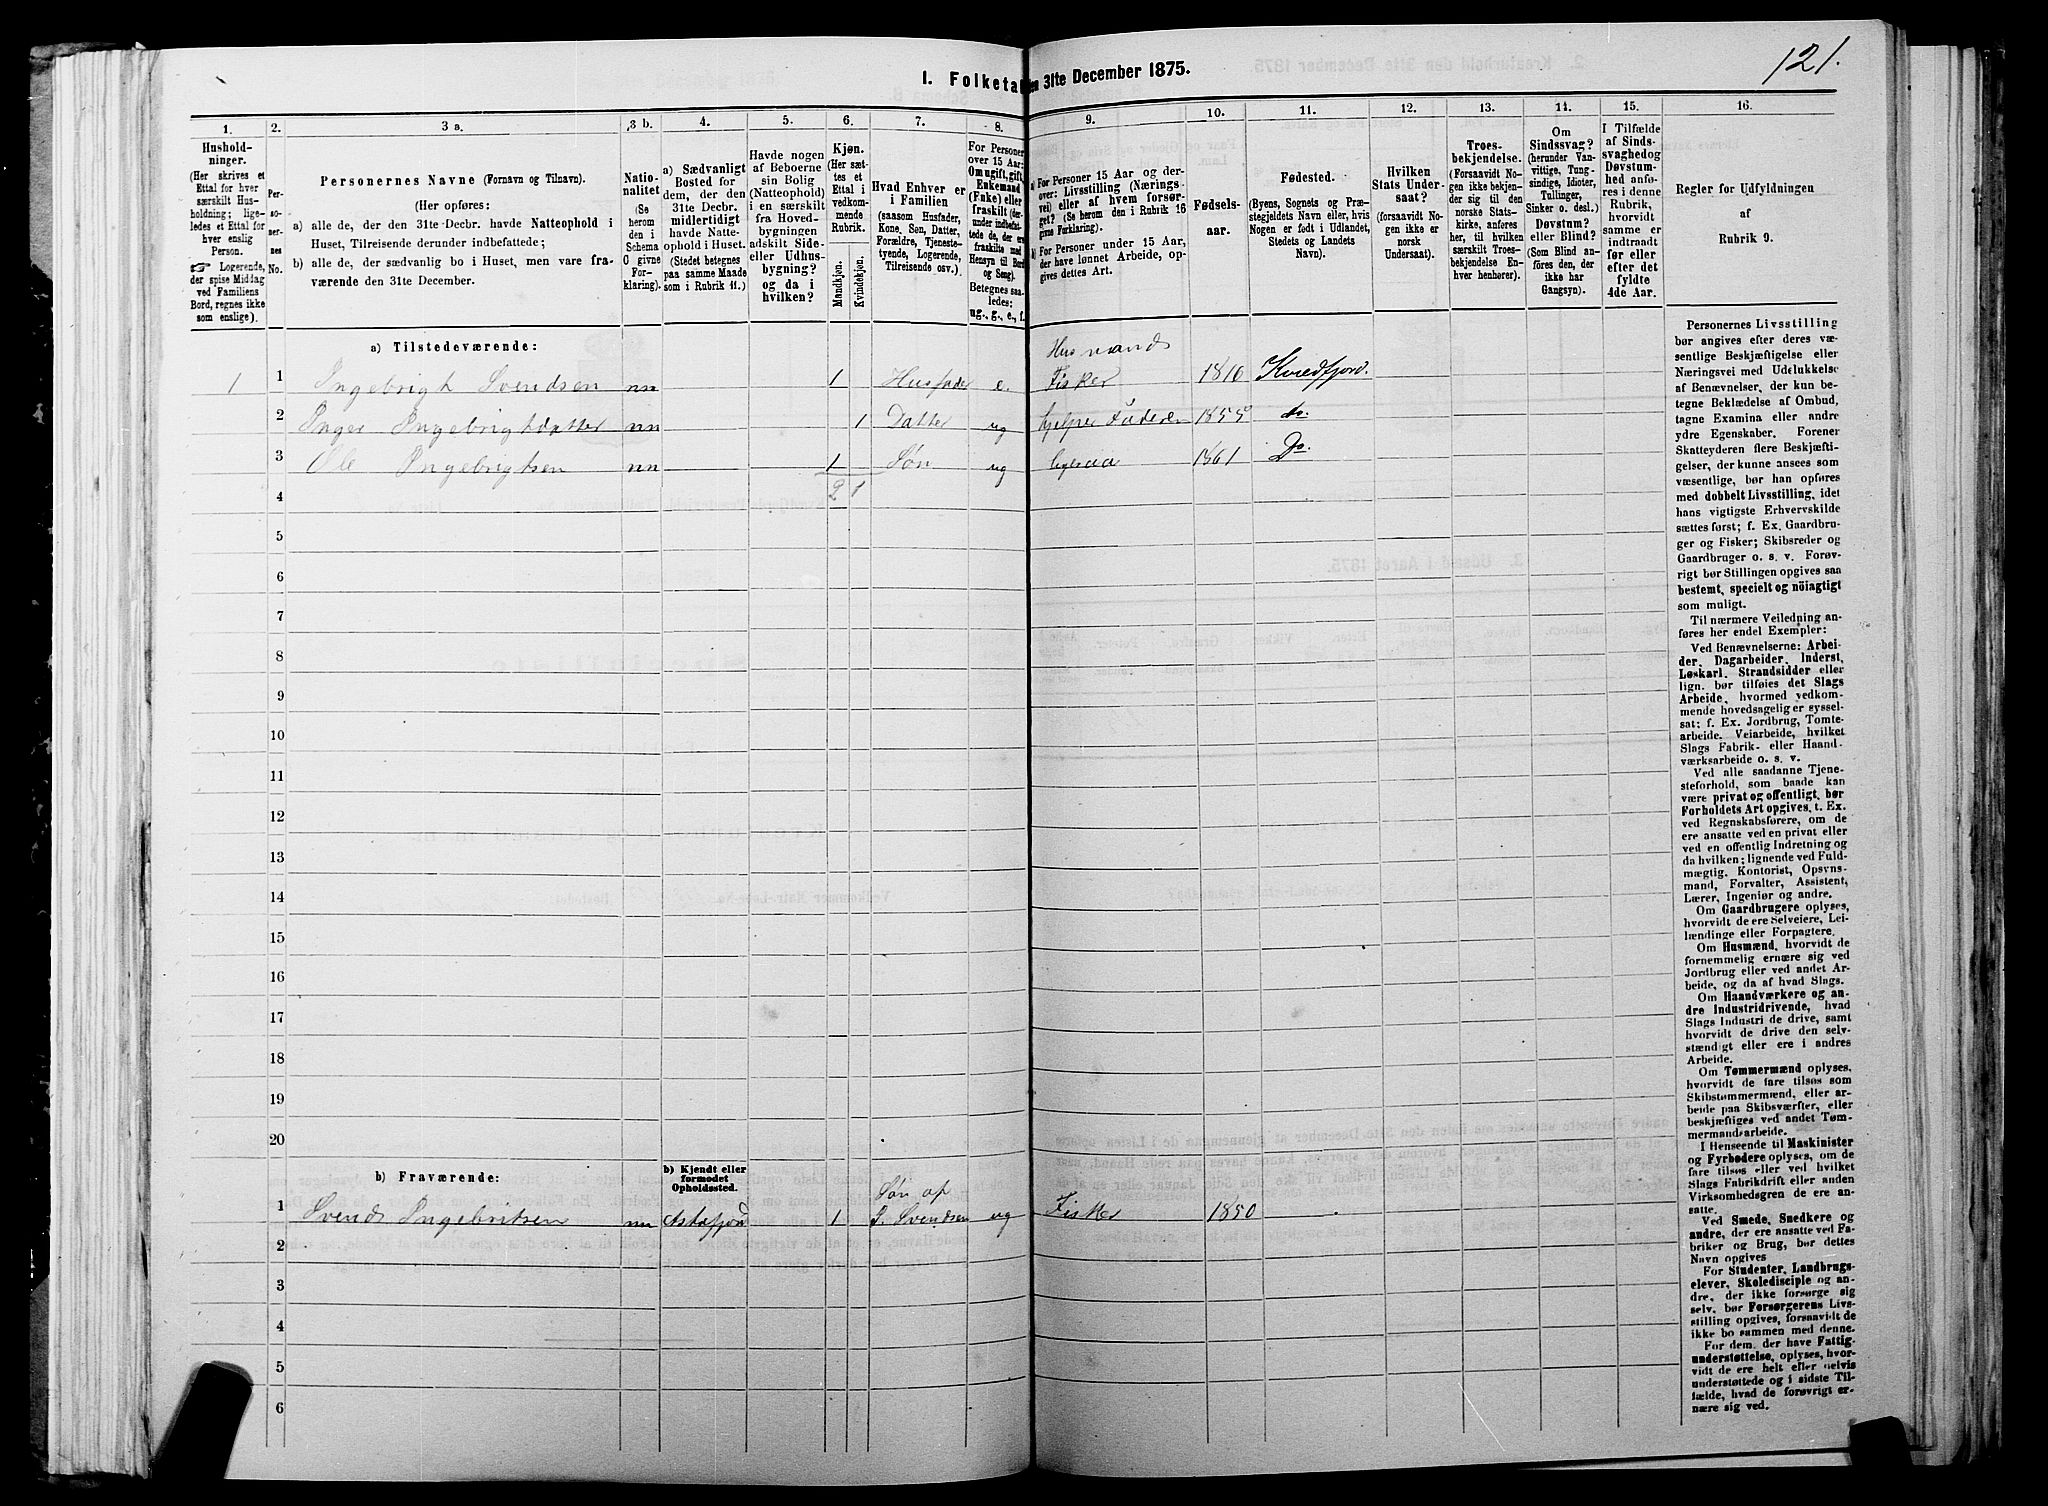 121.
I. Folketal den 31te December 1875.
1.
Hushold-
ninger.
(Her skrives et
Ettal for hver
særskilt Hus-
holdning; lige-
ledes et Ettal for
hver enslig
Person.
☞ Logerende,
der spise Middag
ved Familiens
Bord, regnes ikke
som enslige).
2.
Per-
so-
ner-
nes
No.
3 a.
Personernes Navne (Fornavn og Tilnavn).
(Her opføres:
a) alle de, der den 31te Decbr. havde Natteophold i
Huset, Tilreisende derunder indbefattede;
b) alle de, der sædvanlig bo i Huset, men vare fra-
værende den 31te December.
3 b.
Natio-
nalitet
(Se
herom
den i
Schema
C givne
For-
klaring).
4.
a) Sædvanligt
Bosted for
dem, der den
31te Decbr.
midlertidigt
havde Natte-
ophold i Huset.
(Stedet betegnes
paa samme Maade
som i Rubrik 11.)
5.
Havde nogen
af Beboerne
sin Bolig
(Natteophold)
i en særskilt
fra Hoved-
bygningen
adskilt Side-
eller Udhus-
bygning?
og da i
hvilken?
6.
Kjøn.
(Her sæt-
tes et
Ettal i
vedkom-
mende
Rubrik.
Mandkjøn.
Kvindekjøn.
7.
Hvad Enhver er
i Familien
(saasom Husfader,
Kone, Søn, Datter,
Forældre, Tjeneste-
tyende, Logerende,
Tilreisende osv.).
8.
For Personer
over 15 Aar:
Om ugift, gift,
Enkemand
(Enke) eller
fraskilt (der-
under indbefat-
tede de, der ere
fraskilte med
Hensyn til Bord
og Seng).
Betegnes saa-
ledes:
ug., g., e., f.
9.
a) For Personer 15 Aar og der-
over: Livsstilling (Nærings-
vei) eller af hvem forsør-
get? (Se herom den i Rubrik 16
givne Forklaring).
b) For Personer under 15 Aar,
der have lønnet Arbeide, op-
gives dettes Art.
10.
Fødsels-
aar.
11.
Fødested.
(Byens, Sognets og Præ-
stegjeldets Navn eller, hvis
Nogen er født i Udlandet,
Stedets og Landets
Navn).
12.
Hvilken
Stats Under-
saat?
(forsaavidt No-
gen ikke er
norsk
Undersaat).
13.
Troes-
bekjendelse.
(Forsaavidt No-
gen ikke bekjen-
der sig til den
norske Stats-
kirke, anføres
her, til hvilken
særskilt Troes-
bekjendelse En-
hver henhører).
14.
Om
Sindssvag?
(herunder Van-
vittige, Tung-
sindige, Idioter,
Tullinger,
Sinker o. desl.)
Døvstum?
eller Blind?
(Som Blind an-
føres den, der
ikke har
Gangsyn).
15.
I Tilfælde
af Sinds-
svaghed og
Døvstum-
hed anfø-
res i denne
Rubrik,
hvorvidt
samme er
indtraadt
før eller
efter det
fyldte
4de Aar.
16.
Regler for Udfyldningen
af
Rubrik 9.
a) Tilstedeværende:
Husmand
1 1 Ingebrigt Svendsen nn 1 Husfader e. Fisker 1810 Kvædfjord.
2 Inger Ingebrigtdatter nn 1 Datter ug hjelper Faderen 1855 do.
3 Ole Ingebrigtsen nn 1 Søn ug ligesaa 1861 Do.
4 2 1
5
6
7
8
9
10
11
12
13
14
15
16
17
18
19
20
b) Fraværende:
b) Kjendt eller
formodet
Opholdssted.
Søn af
1 Svend Ingebritsen nn Astafjord 1 I. Svendsen ug Fisker 1850
2
3
4
5
6
Personernes Livsstilling
bør angives efter deres væ-
sentlige Beskjæftigelse eller
Næringsvei med Udelukkelse
af Benævnelser, der kun be-
tegne Beklædelse af Ombud,
tagne Examina eller andre
ydre Egenskaber. Forener
Skatteyderen flere Beskjæfti-
gelser, der kunne ansees som
væsentlige, bør han opføres
med dobbelt Livsstilling, idet
hans vigtigste Erhvervskilde
sættes først; f. Ex. Gaardbru-
ger og Fisker; Skibsreder og
Gaardbruger o. s. v. Forøv-
rigt bør Stillingen opgives saa
bestemt, specielt og nöiagtigt
som muligt.
Til nærmere Veiledning an-
føres her endel Exempler:
Ved Benævnelserne: Arbei-
der, Dagarbeider, Inderst,
Løskarl, Strandsidder eller
lign. bør tilføies det Slags
Arbeide, hvormed vedkom-
mende hovedsagelig er syssel-
sat; f. Ex. Jordbrug, Tomte-
arbeide, Veiarbeide, hvilket
Slags Fabrik- eller Haand-
værksarbeide o. s. v.
Ved alle saadanne Tjene-
steforhold, som baade kan
være privat og offentligt, bør
Forholdets Art opgives, t. Ex.
ved Regnskabsførere, om de
ere ansatte ved en privat eller
ved en offentlig Indretning og
da hvilken; lignende ved Fuld-
mægtig, Kontorist, Opsyns-
mand, Forvalter, Assistent,
Lærer, Ingeniør og andre.
Om Gaardbrugere oplyses,
hvorvidt de ere Selveiere, Lei-
lændinge eller Forpagtere.
Om Husmænd, hvorvidt de
fornemmelig ernære sig ved
Jordbrug eller ved andet Ar-
beide, og da af hvad Slags.
Om Haandværkere og an-
dre Industridrivende, hvad
Slags Industri de drive, samt
hvorvidt de drive den selv-
stændigt eller ere i andres
Arbeide.
Om Tømmermænd oplyses,
hvorvidt de fare tilsøs som
Skibstømmermænd, eller ar-
beide paa Skibsværfter, eller
beskjæftiges ved andet Tøm-
mermandsarbeide.
I Henseende til Maskinister
og Fyrbødere oplyses, om de
fare tilsøs eller ved hvilket
Slags Fabrikdrift eller anden
Virksomhedsgren de ere an-
satte.
Ved Smede, Snedkere og
andre, der ere ansatte ved Fa-
briker og Brug, bør dettes
Navn opgives
For Studenter, Landbrugs-
elever, Skoledisciple og an-
dre, der ikke forsørge sig
selv, bør Forsørgerens Livs-
stilling opgives, forsaavidt de
ikke bo sammen med denne.
For dem, der have Fattig-
understøttelse, oplyses, hvor-
vidt de ere helt eller delvis
understøttede og i sidste Til-
fælde, hvad de forøvrigt er-
nære sig ved.